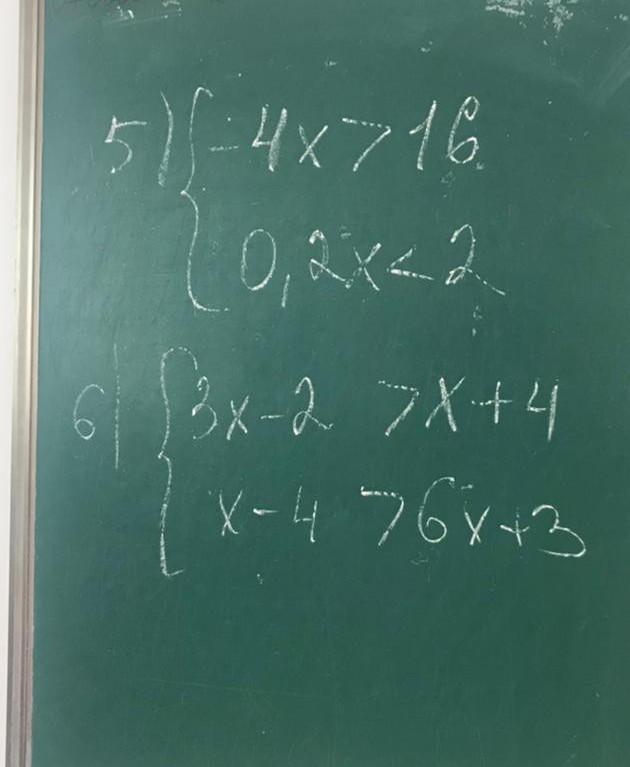 5) { -4x > 16
0,2x < 2
6) { 3x-2 > x+4
x-4 > 6x+3